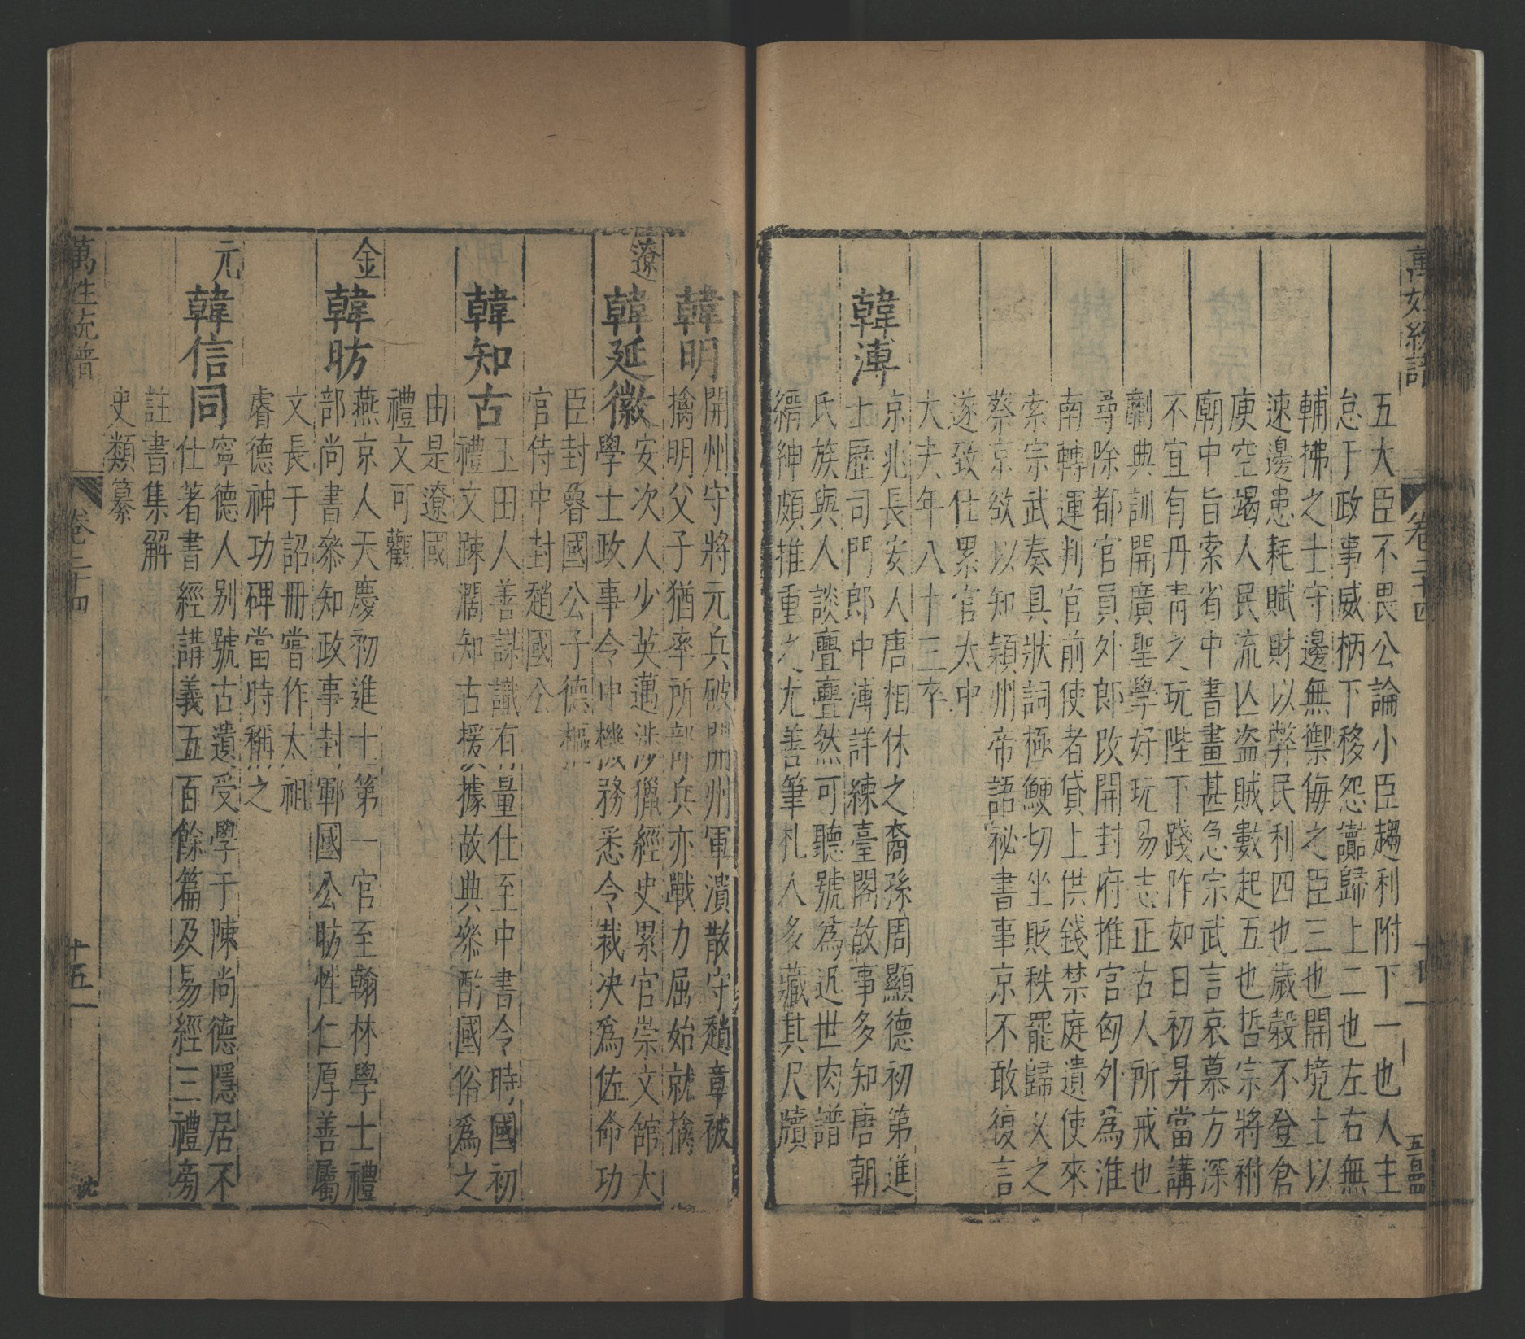 萬姓統譜
卷二十四
五大臣不畏公論小臣趨利附下一也人主
怠于政事威柄下移怨讟歸上二也左右無
輔拂之士守邊無禦侮之臣三也開境土以
速邊患耗賦財以弊民利四也歲穀不登倉
庾空竭人民流亾盗賊數起五也哲宗將祔
廟中旨索省中書畫甚急宗武言哀慕方深
不宜有丹靑之玩陛下踐阼如日初昇當講
劘典訓開廣聖學好玩易志正古人所戒也
尋除都官員外郎改開封府推官匈外為淮
南轉運判官前使者貸上供錢禁庭遺使來
索宗武奏具狀詞極鯁切坐貶秩罷歸父之
蔡京欲以知潁州帝語祕書事京不敢復言
遂致仕累官太中
大夫年八十三卒
韓溥
京兆長安人唐相休之裔孫周顯德初第進
士歷司門郎中溥詳練臺閣故事多知唐朝
氏族與人談亹亹然可聽號為近世肉譜
縉紳頗推重之尤善筆札人多藏其尺牘
韓明
開州守將元兵破開州軍潰散守趙章被
擒明父子猶率所部兵亦戰力屈始就擒
遼
韓延徽
安次人少英邁涉獵經史累官崇文館大
學士政事令中機務悉令裁决爲佐命功
臣封魯國公子德樞
官侍中封趙國公
韓知古
玉田人善謀識有量仕至中書令時國初
禮文踈濶知古援據故典叅酌國俗爲之
由是遼國
禮文可觀
金
韓昉
燕京人天慶初進士第一官至翰林學士禮
部尚書叅知政事封鄆國公昉性仁厚善屬
文長于詔冊嘗作太祖
睿德神功碑當時稱之
元
韓信同
寧德人别號古遺受學于陳尚德隱居不
仕著書經講義五百餘篇及易經三禮旁
註書集解
史類纂
萬姓統譜
卷二十四
十五